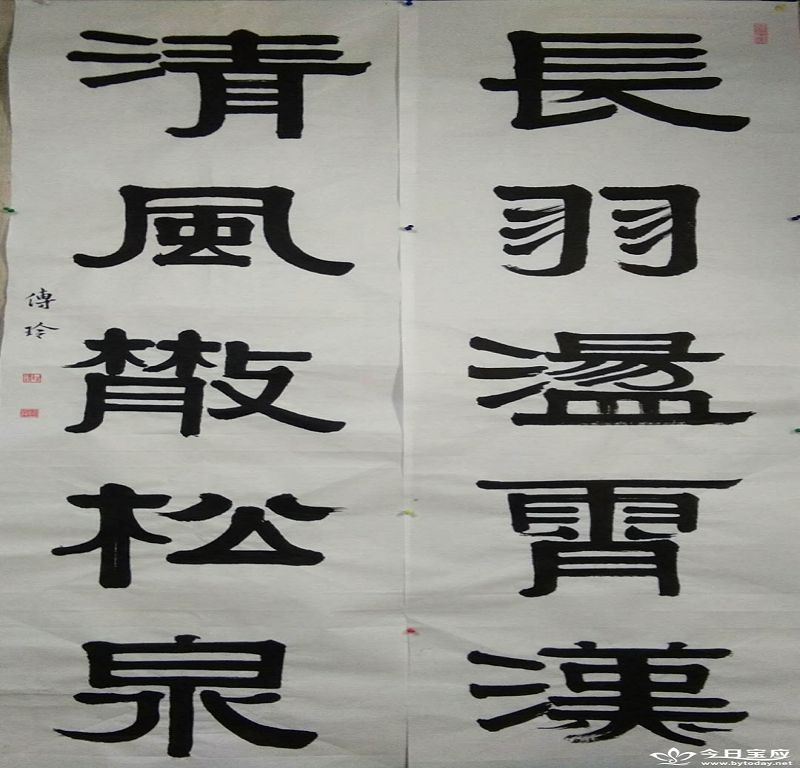 長羽盪霄漢
清風散松泉
傅玲
今日宝应
www.bytoday.net